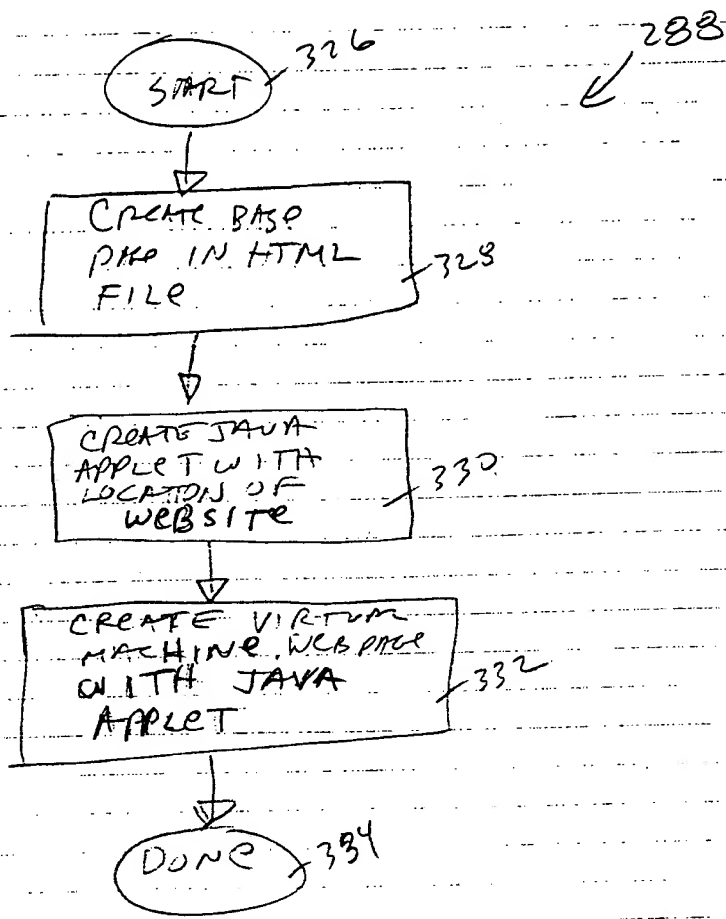 288
START 326
CREATE BASE
PAGE IN HTML
FILE 328
CREATE JAVA
APPLET WITH
LOCATION OF
WEBSITE 330
CREATE VIRTUAL
MACHINE WEBPAGE
WITH JAVA
APPLET 332
DONE 334